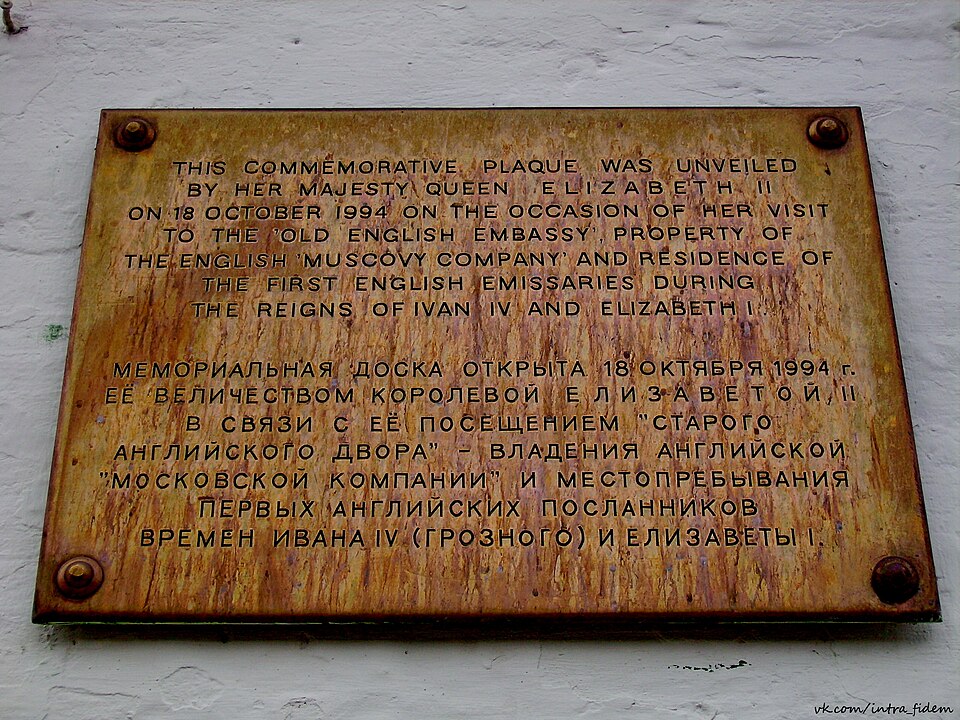 THIS COMMEMORATIVE PLAQUE WAS UNVEILED
BY HER MAJESTY QUEEN ELIZABETH II
ON 18 OCTOBER 1994 ON THE OCCASION OF HER VISIT
TO THE 'OLD ENGLISH EMBASSY', PROPERTY OF
THE ENGLISH 'MUSCOVY COMPANY' AND RESIDENCE OF
THE FIRST ENGLISH EMISSARIES DURING
THE REIGNS OF IVAN IV AND ELIZABETH I.
МЕМОРИАЛЬНАЯ ДОСКА ОТКРЫТА 18 ОКТЯБРЯ 1994 г.
ЕЁ ВЕЛИЧЕСТВОМ КОРОЛЕВОЙ ЕЛИЗАВЕТОЙ II
В СВЯЗИ С ЕЁ ПОСЕЩЕНИЕМ "СТАРОГО
АНГЛИЙСКОГО ДВОРА" – ВЛАДЕНИЯ АНГЛИЙСКОЙ
"МОСКОВСКОЙ КОМПАНИИ" И МЕСТОПРЕБЫВАНИЯ
ПЕРВЫХ АНГЛИЙСКИХ ПОСЛАННИКОВ
ВРЕМЕН ИВАНА IV (ГРОЗНОГО) И ЕЛИЗАВЕТЫ I.
vk.com/intra_fidem